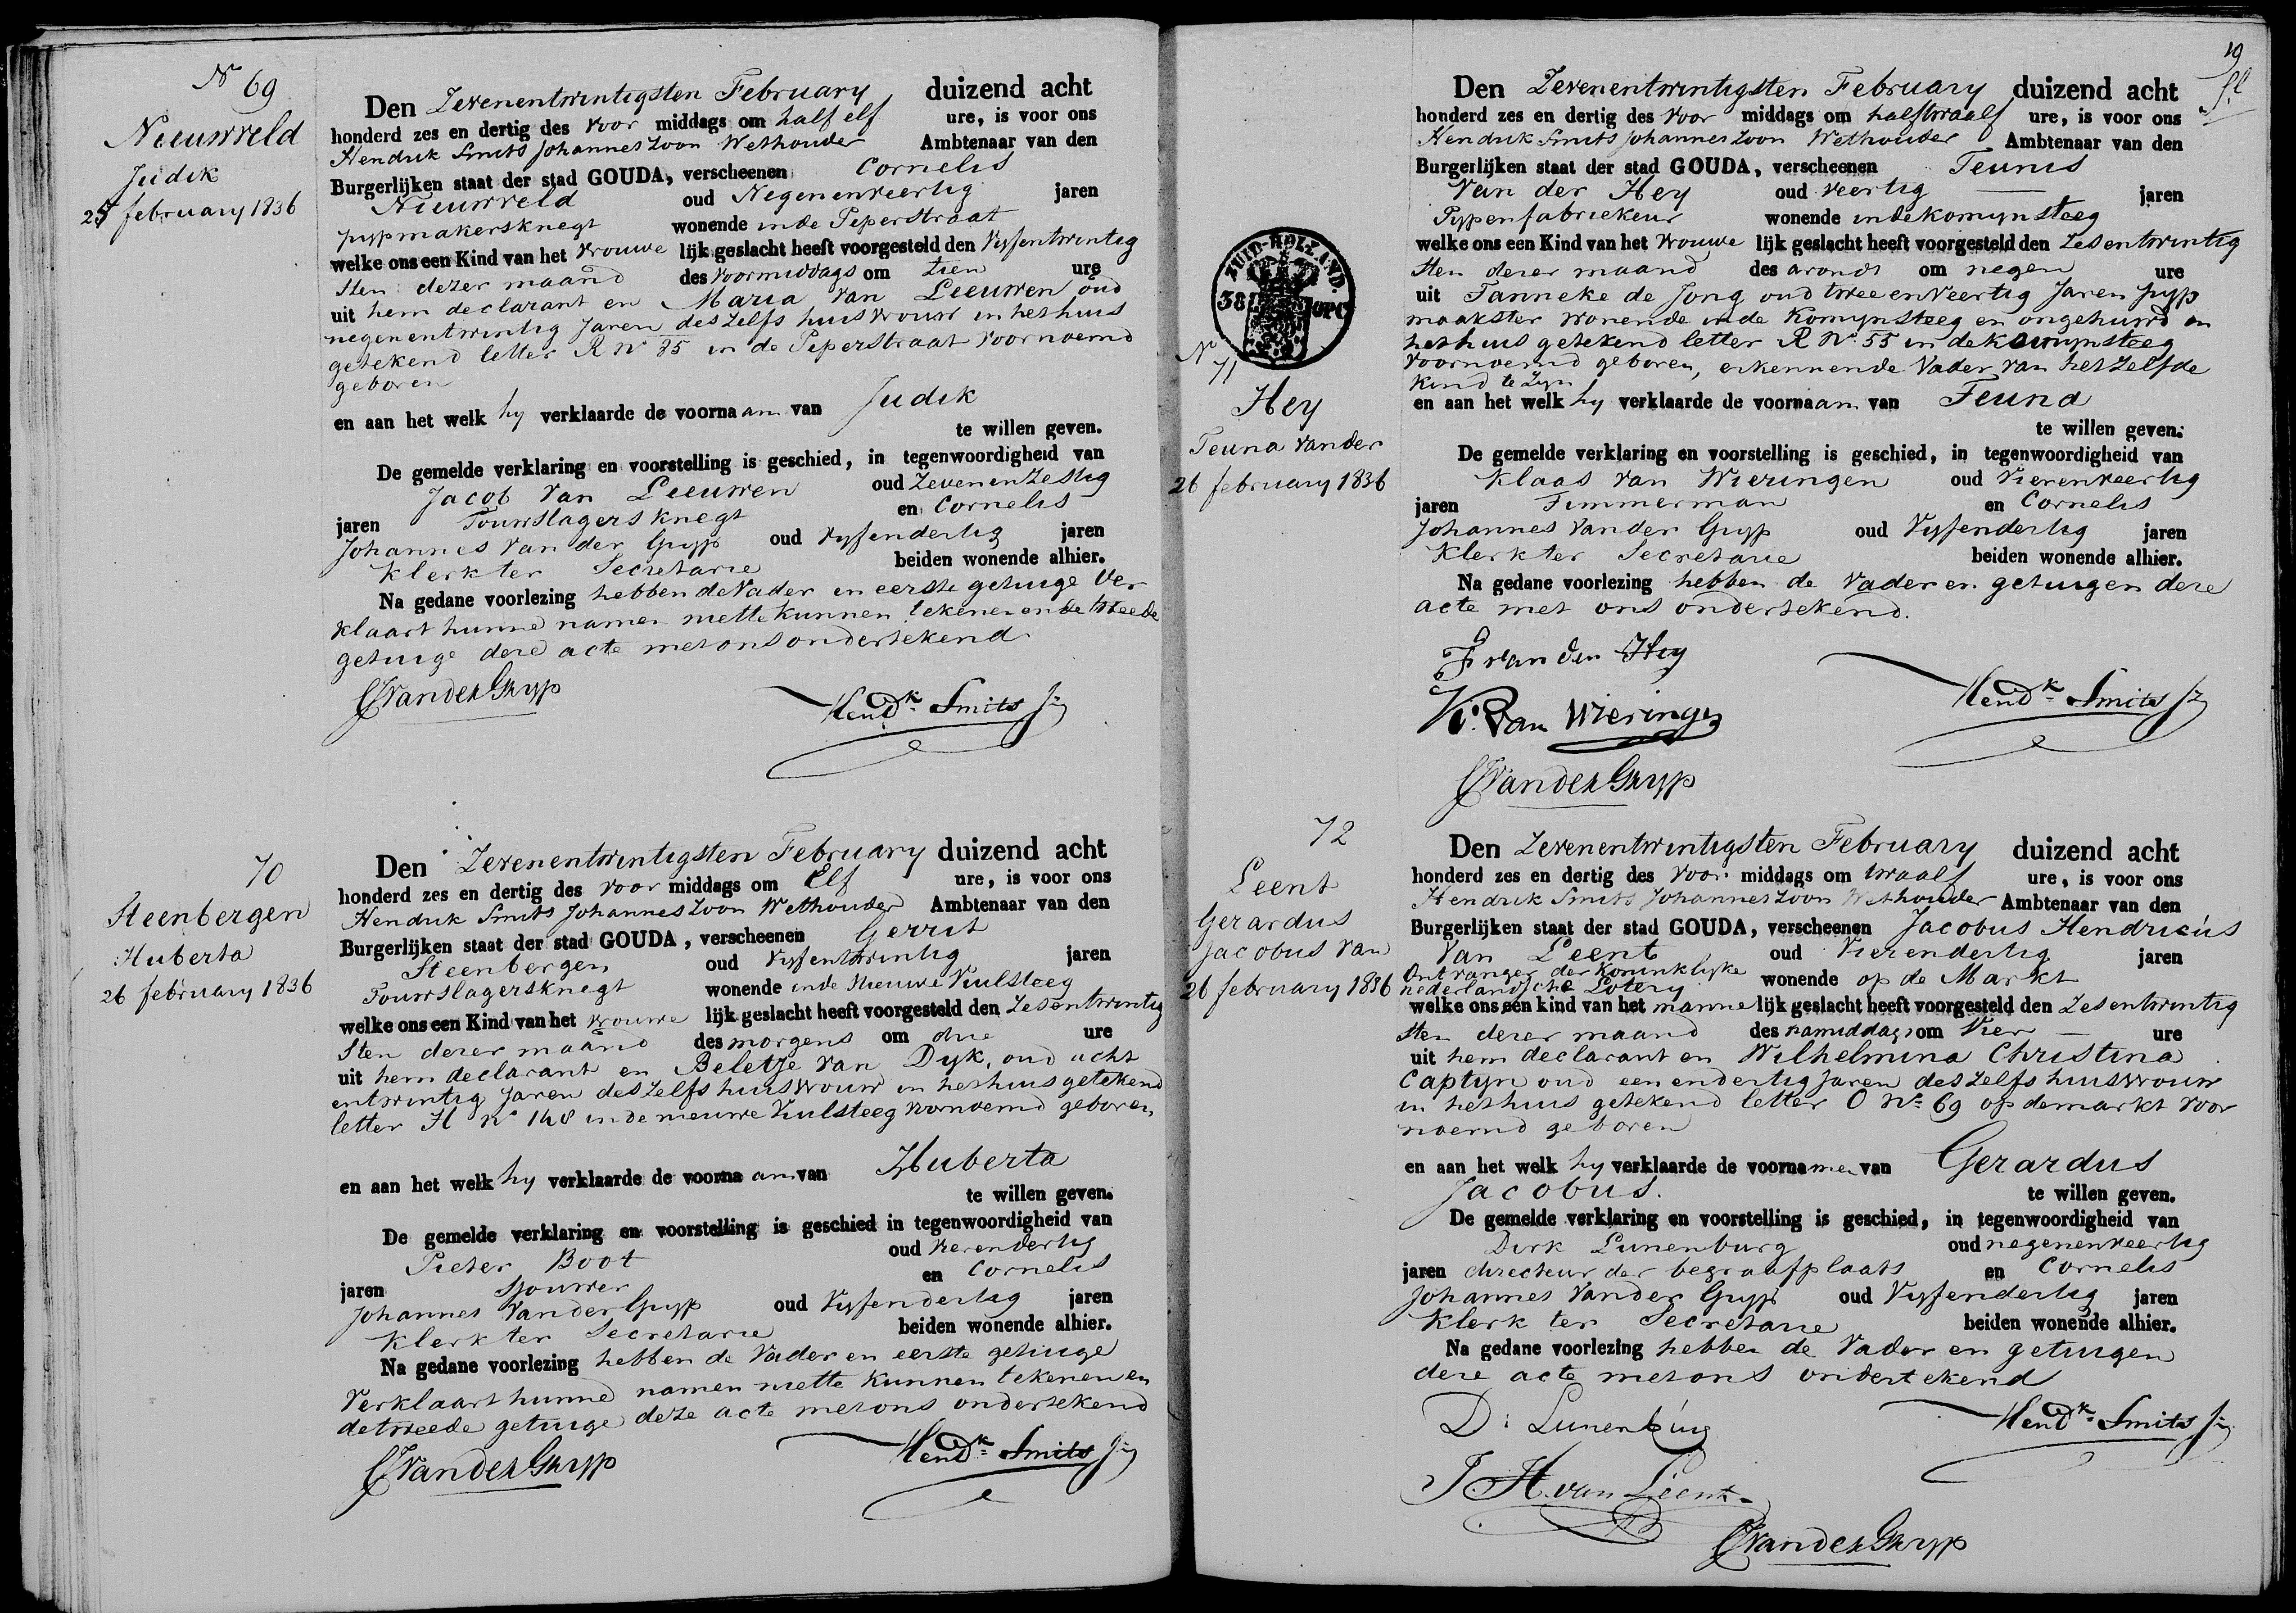 No 69
Nieuwveld
Judik
25 february 1836
Den Zevenentwintigsten February duizend acht
honderd zes en dertig des voor middags om half elf ure, is voor ons
Hendrik Smits Johannes Zoon Wethouder Ambtenaar van den
Burgerlijken staat der stad GOUDA, verscheenen Cornelis
Nieuwveld oud Negenenveertig jaren
pypmakersknegt wonende in de Peperstraat
welke ons een Kind van het vrouwe lijk geslacht heeft voorgesteld den Vyfentwintig
sten dezer maand des voormiddags om tien ure
uit hem declarant en Maria van Leeuwen oud
negenentwintig Jaren deszelfs huisvrouw in het huis
getekend letter R No 85 in de Peperstraat voornoemd
geboren
en aan het welk hy verklaarde de voorna am van Judik
te willen geven.
De gemelde verklaring en voorstelling is geschied, in tegenwoordigheid van
Jacob van Leeuwen oud Zevenenzestig
jaren Touwslagersknegt en Cornelis
Johannes van der Gryp oud vyfendertig jaren
Klerk ter Secretarie beiden wonende alhier.
Na gedane voorlezing hebben de Vader en eerste getuige ver
klaart hunne namen niet te kunnen tekenen en de tweede
getuige deze acte met ons ondertekend
CJVanderGryp
Hendk Smits Jz
70
Steenbergen
Huberta
26 february 1836
Den Zevenentwintigsten February duizend acht
honderd zes en dertig des voor middags om Elf ure, is voor ons
Hendrik Smits Johannes Zoon Wethouder Ambtenaar van den
Burgerlijken staat der stad GOUDA, verscheenen Gerrit
Steenbergen oud vyfentwintig jaren
Touwslagersknegt wonende in de Nieuwe Vuilsteeg
welke ons een Kind van het vrouwe lijk geslacht heeft voorgesteld den Zesentwintig
sten dezer maand des morgens om drie ure
uit hem declarant en Beletje van Dyk, oud acht
entwintig Jaren deszelfs huisvrouw in het huis getekend
letter H No 148 in de nieuwe Vuilsteeg voornoemd geboren
en aan het welk hy verklaarde de voorna am van Huberta
te willen geven.
De gemelde verklaring en voorstelling is geschied in tegenwoordigheid van
Pieter Boot oud vierendertig
jaren Sjouwer en Cornelis
Johannes Van der Gryp oud Vyfendertig jaren
Klerk ter Secretarie beiden wonende alhier.
Na gedane voorlezing hebben de Vader en eerste getuige
verklaart hunne namen niet te kunnen tekenen en
de tweede getuige deze acte met ons ondertekend
CJVanderGryp
Hendk Smits Jz
19
ZUID-HOLLAND.
38 OPC
No 71
Hey
Teuna van der
26 february 1836
Den Zevenentwintigsten February duizend acht
honderd zes en dertig des voor middags om halftwaalf ure, is voor ons
Hendrik Smits Johannes Zoon Wethouder Ambtenaar van den
Burgerlijken staat der stad GOUDA, verscheenen Teunis
Van der Hey oud veertig jaren
Pypenfabriekeur wonende in de Komynsteeg
welke ons een Kind van het vrouwe lijk geslacht heeft voorgesteld den Zesentwintig
sten dezer maand des avonds om negen ure
uit Tanneke de Jong oud twee en Veertig Jaren pyp
maakster wonende in de Komynsteeg en ongehuwd in
het huis getekend letter R No 55 in de Komynsteeg
voornoemd geboren, erkennende Vader van hetzelfde
kind te zyn
en aan het welk hy verklaarde de voornaam van Teuna
te willen geven.
De gemelde verklaring en voorstelling is geschied, in tegenwoordigheid van
Klaas van Wieringen oud Vierenveertig
jaren Timmerman en Cornelis
Johannes van der Gryp oud Vyfendertig jaren
Klerk ter Secretarie beiden wonende alhier.
Na gedane voorlezing hebben de Vader en getuigen deze
acte met ons ondertekend.
T van der Hey
K. Van Wieringen
CJVanderGryp
Hendk Smits Jz
72
Leent
Gerardus
Jacobus van
26 february 1836
Den Zevenentwintigsten February duizend acht
honderd zes en dertig des voor middags om twaalf ure, is voor ons
Hendrik Smits Johannes Zoon Wethouder Ambtenaar van den
Burgerlijken staat der stad GOUDA, verscheenen Jacobus Hendricus
Van Leent oud Vierendertig jaren
Ontvanger der Koninklyke
nederlandsche Lotery wonende op de Markt
welke ons een kind van het manne lijk geslacht heeft voorgesteld den Zesentwintig
sten dezer maand des namiddags om Vier ure
uit hem declarant en Wilhelmina Christina
Captyn oud een en dertig Jaren deszelfs huisvrouw
in het huis getekend letter O No 69 op de markt voor
noemd geboren
en aan het welk hy verklaarde de voornamen van Gerardus
Jacobus. te willen geven.
De gemelde verklaring en voorstelling is geschied, in tegenwoordigheid van
Dirk Lunenburg oud negenenveertig
jaren directeur der begraafplaats en Cornelis
Johannes Vander Gryp oud Vyfendertig jaren
Klerk ter Secretarie beiden wonende alhier.
Na gedane voorlezing hebben de Vader en getuigen
deze acte met ons ondertekend
D: Lunenburg
Hendk Smits Jz
J H van Leent
CJVanderGryp